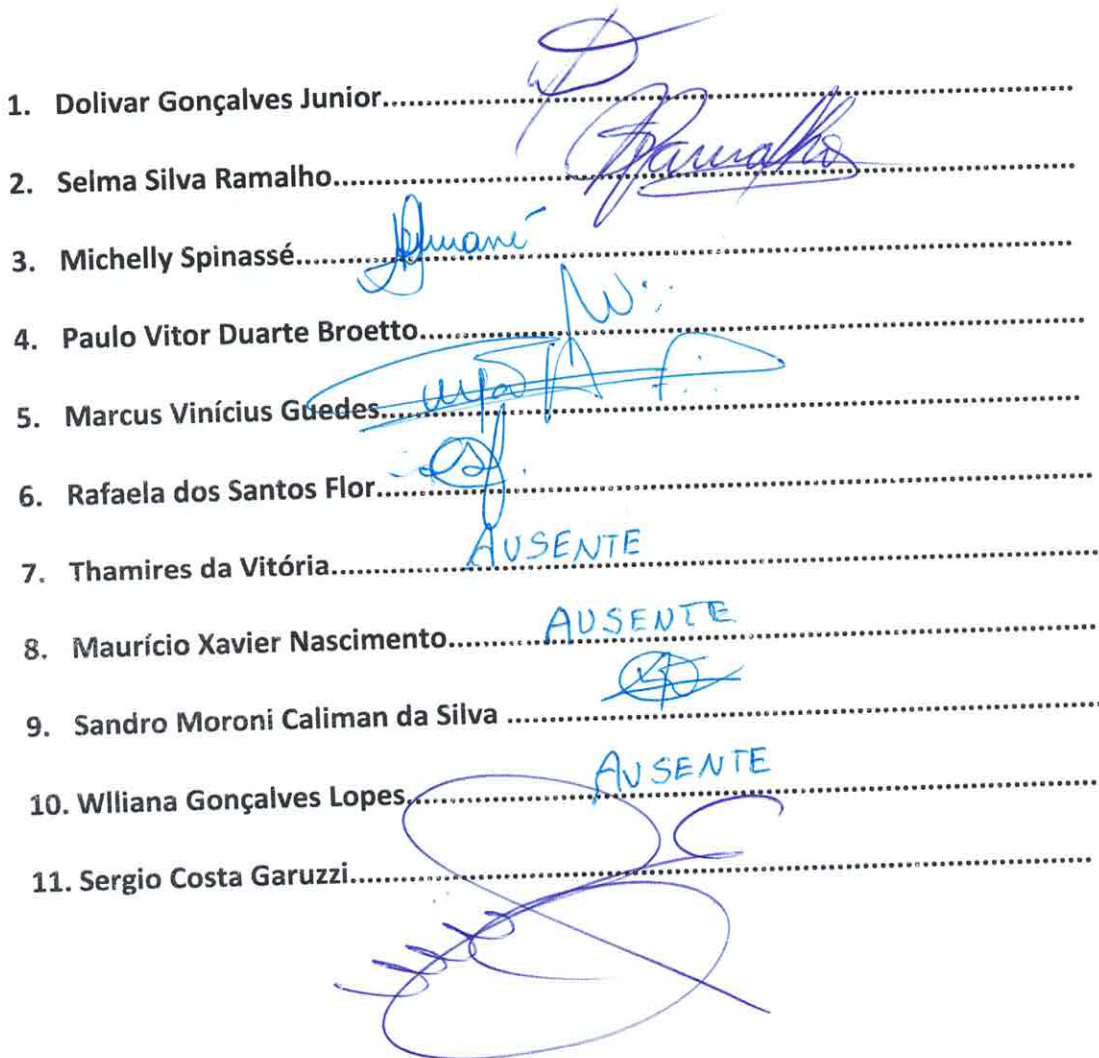 1. Dolivar Gonçalves Junior..........
2. Selma Silva Ramalho.......... Ramalho
3. Michelly Spinassé..........
4. Paulo Vitor Duarte Broetto..........
5. Marcus Vinícius Guedes..........
6. Rafaela dos Santos Flor..........
7. Thamires da Vitória.......... AUSENTE
8. Maurício Xavier Nascimento.......... AUSENTE
9. Sandro Moroni Caliman da Silva ..........
10. Wlliana Gonçalves Lopes.......... AUSENTE
11. Sergio Costa Garuzzi..........